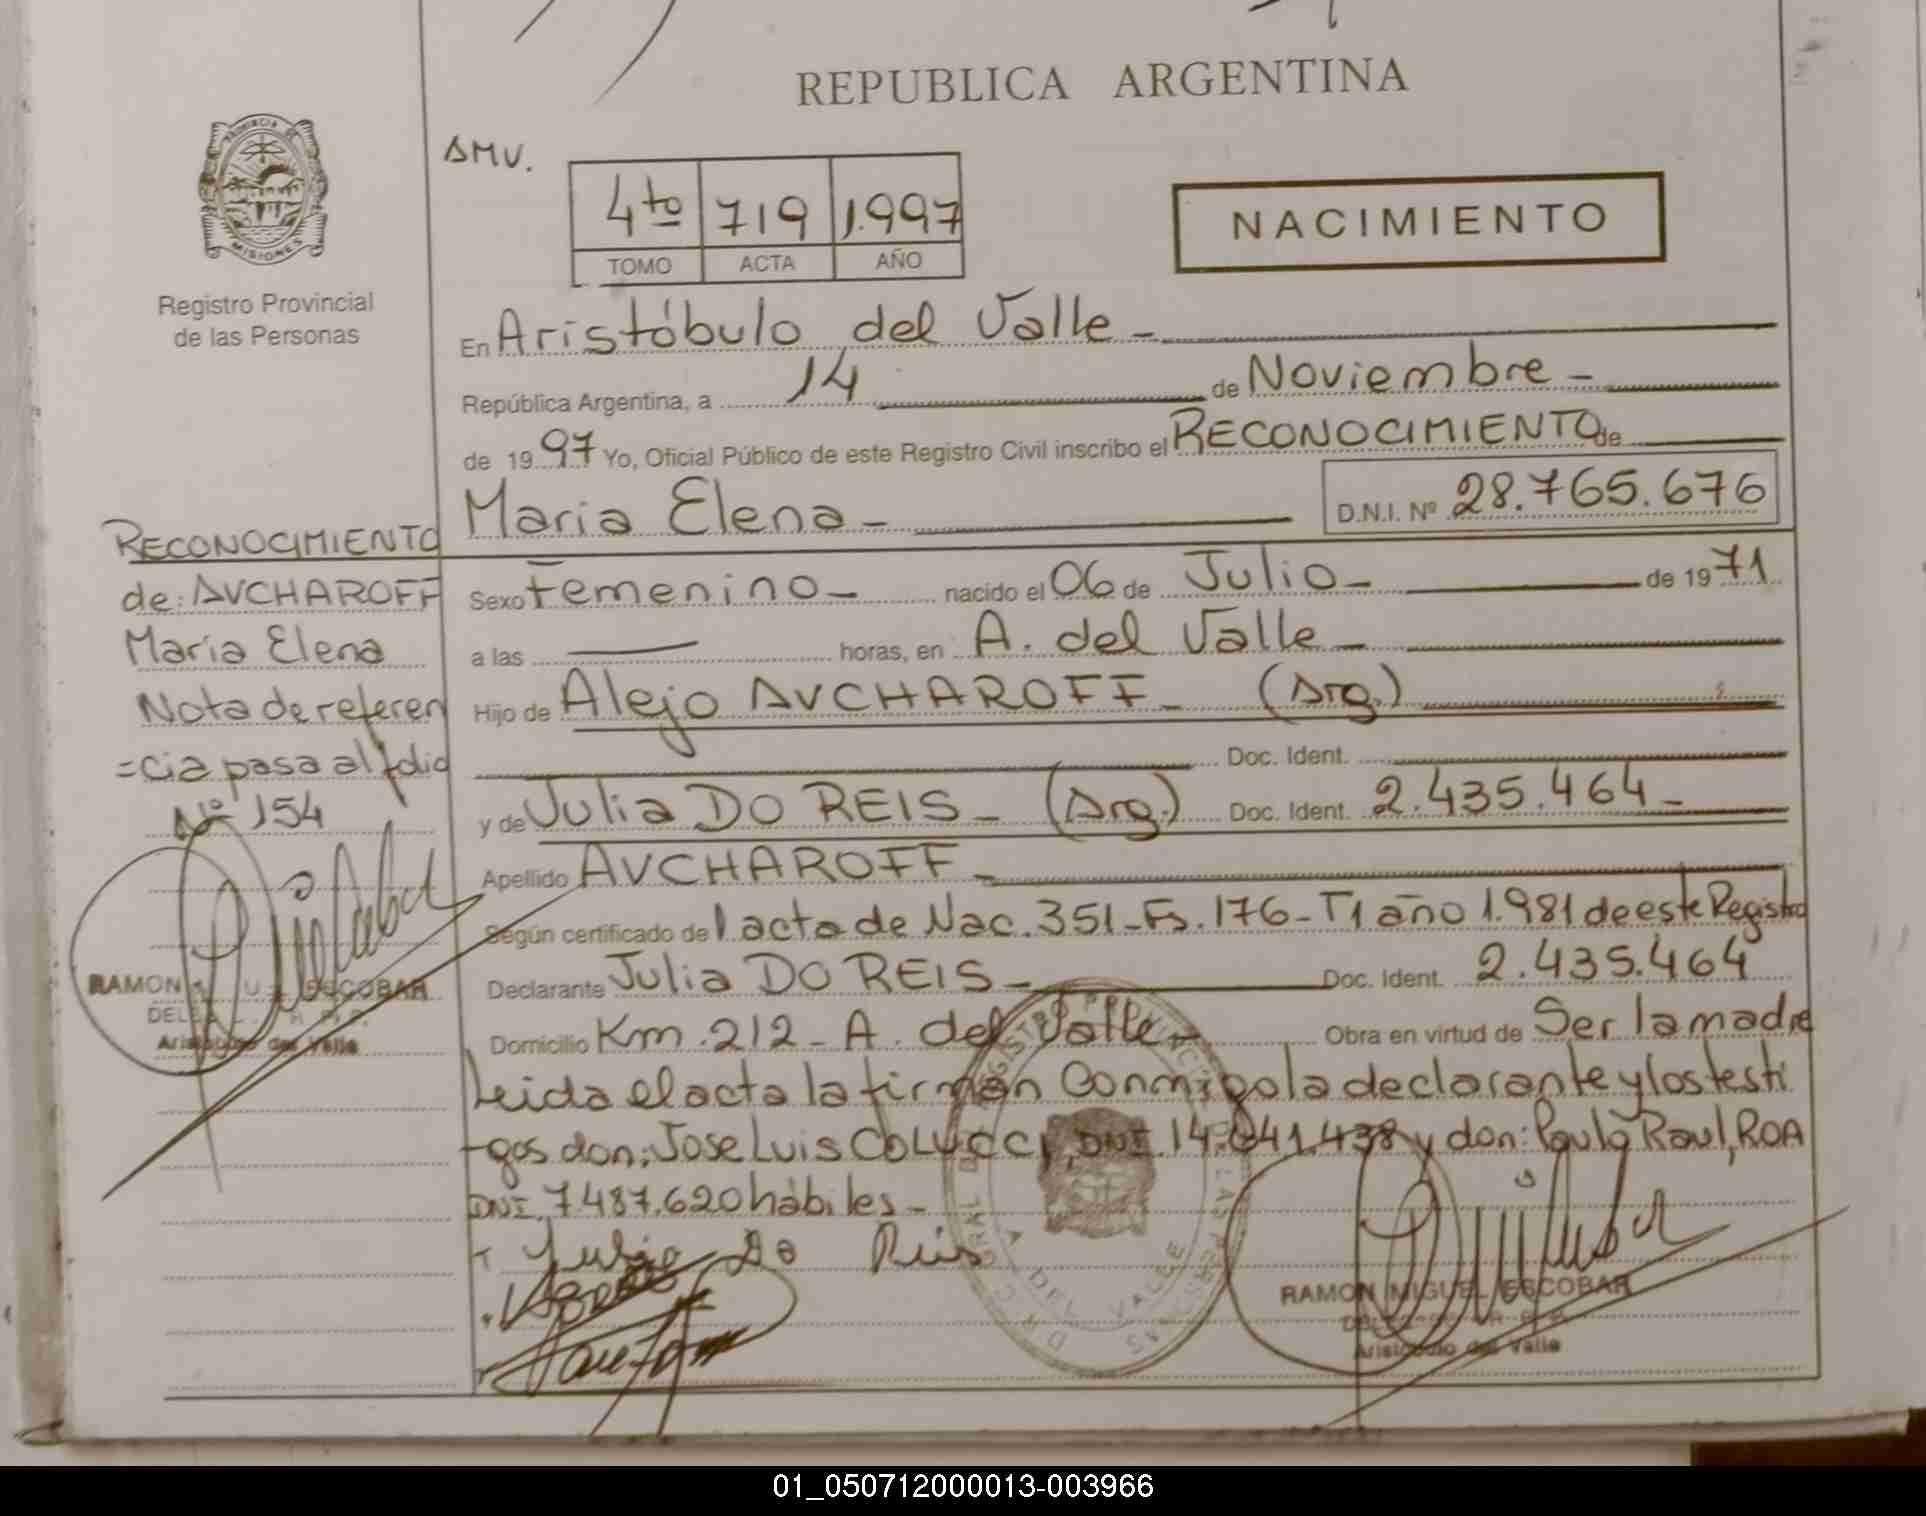 REPUBLICA ARGENTINA
PROVINCIA DE
MISIONES
Registro Provincial
de las Personas
AMV.
4to 719 1.997
TOMO ACTA AÑO
NACIMIENTO
En Aristóbulo del Valle_
República Argentina, a 14 de Noviembre_
de 1997 Yo, Oficial Público de este Registro Civil inscribo el RECONOCIMIENTO de
Maria Elena_ D.N.I. Nº 28.765.676
RECONOCIMIENTO
de: AVCHAROFF
María Elena
Nota de referen
=cia pasa al folio
Nº 154
RAMON ESCOBAR
Aristobulo del Valle
Sexo Femenino_ nacido el 06 de Julio_ de 1971
a las — horas, en A. del Valle_
Hijo de Alejo AVCHAROFF_ (Arg.)
Doc. Ident.
y de Julia DO REIS_ (Arg.) Doc. Ident. 2.435.464_
Apellido AVCHAROFF_
Según certificado del acta de Nac. 351_Fs. 176_T1 año 1.981 de este Registro
Declarante Julia DO REIS_ Doc. Ident. 2.435.464
Domicilio Km. 212_ A. del Valle_ Obra en virtud de Ser la madre
Leida el acta la firman Conmigo la declarante y los testi
-gos don: Jose Luis COLUCCI, DNI. 14.041.438 y don: Paulo Raul, ROA
DNI. 7.487.620 hábiles_
Julia Do Reis
A DEL VALLE
RAMON MIGUEL ESCOBAR
Aristobulo del Valle
01_050712000013-003966